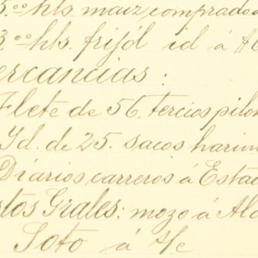 5.00 hls. maiz comprado a
3.00 hls. frijol id á $6
ercancias:
Flete de 56. tercios pilon
Id. de 25. sacos harin
Diarios carreros á Estac
stos Grales: mozo á Alo
Soto á s/c